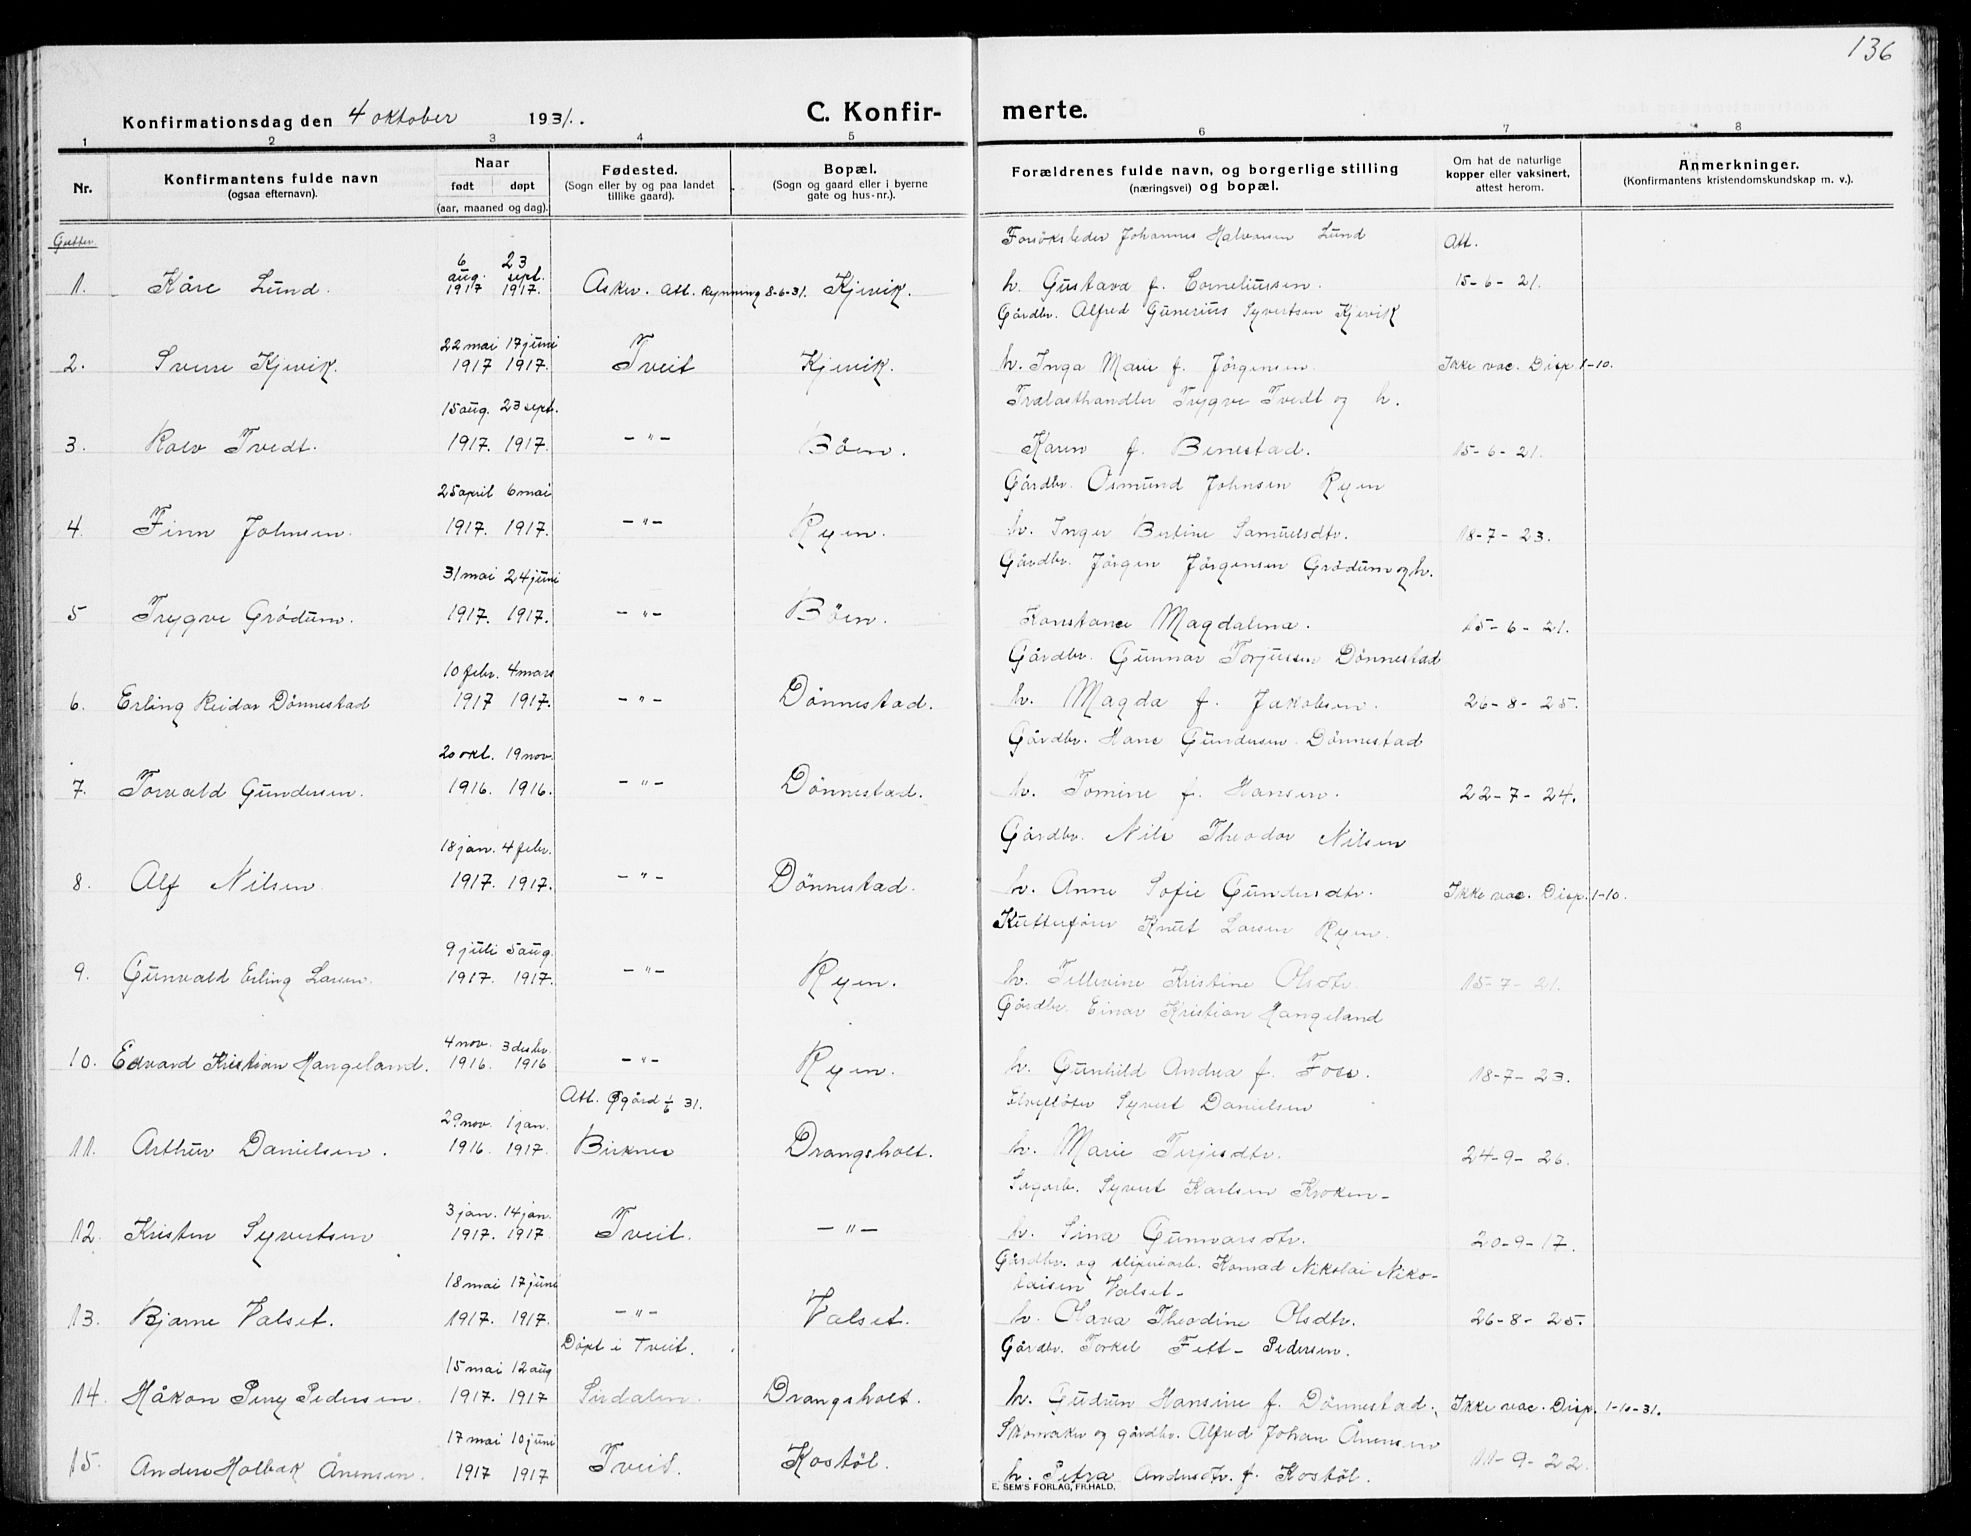 136
Konfirmationsdag den 4 oktober 1931. C. Konfir- merte.
1 2 3 4 5 6 7 8
Nr.
Konfirmantens fulde navn
(ogsaa efternavn).
Naar
født døpt
(aar, maaned og dag).
Fødested.
(Sogn eller by og paa landet
tillike gaard).
Bopæl.
(Sogn og gaard eller i byerne
gate og hus-nr.).
Forældrenes fulde navn, og borgerlige stilling
(næringsvei) og bopæl.
Om hat de naturlige
kopper eller vaksinert,
attest herom.
Anmerkninger.
(Konfirmantens kristendomskundskap m. v.).
Gutter
Forsöksleder Johannes Halvorsen Lund Att.
6 23
aug. sept.
1. Kåre Lund. 1917 1917. Asker. Att. Rynning 8-6-31. Kjevik. h. Gustava f. Corneliussen. 15-6-21.
Gårdbr. Alfred Gunerius Syvertsen Kjevik
22 mai 17 juni
2. Sverre Kjevik. 1917 1917. Tveit Kjevik. h. Inga Marie f. Jørgensen. Ikke vac. Disp. 1-10.
Trælasthandler Trygve Tvedt og h.
15 aug. 23 sept.
3. Rolv Tvedt. 1917. 1917. -"- Böen. Karen f. Benestad. 15-6-21.
Gårdbr. Osmund Johnsen Ryen
25 april 6 mai
4 Finn Johnsen. 1917. 1917. -"- Ryen. h. Inger Bertine Samuelsdtr. 18-7-23.
Gårdbr. Jørgen Jørgensen Grödum og h.
31 mai 24 juni
5 Trygve Grödum. 1917. 1917. -"- Böen. Konstance Magdalena. 15-6-21.
Gårdbr. Gunnar Torjussen Dönnestad
10 febr. 4 mars
6. Erling Reidar Dönnestad 1917 1917. -"- Dönnestad. h. Magda f. Jakobsen. 26-8-25.
Gårdbr. Hans Gundersen Dönnestad
20 okt. 19 nov.
7. Torvald Gundersen. 1916. 1916. -"- Dönnestad. h. Tomine f. Hansen. 22-7-24.
Gårdbr. Nils Theodor Nilsen
18 jan. 4 febr.
8. Alf Nilsen. 1917. 1917. -"- Dönnestad. h. Anne Sofie Gundersdtr. Ikke vac. Disp. 1-10.
Kutterfører Knut Larsen Ryen.
9 juli 5 aug.
9. Gunvald Erling Larsen. 1917. 1917. -"- Ryen. h. Tellevine Kristine Olsdtr. 15-7-21.
Gårdbr. Einar Kristian Hangeland
4 nov. 3 desbr.
10. Edvard Kristian Hangeland. 1916. 1916 -"- Ryen. h. Gunhild Andrea f. Foss. 18-7-23.
Att. Ögård 1/6 31. Elvefløter Syvert Danielsen
29 nov. 1 jan.
11. Arthur Danielsen. 1916. 1917. Birknes Drangsholt. h. Marie Terjesdtr. 24-9-26.
Sagarb. Syvert Karlsen Kroken-
3 jan. 14 jan.
12. Kristen Syvertsen 1917. 1917. Tveit. -"- h. Sina Gunvarsdtr. 20-9-17.
Gårdbr. og sliperiarb. Konrad Nikolai Niko-
laisen Valset-
18 mai 17 juni
13. Bjarne Valset. 1917. 1917. -"- Valset. h. Olava Theodine Olsdtr. 26-8-25.
Döpt i Tveit. Gårdbr. Torkel Fett- Pedersen.
15 mai 12 aug
14. Håkon Perry Pedersen 1917. 1917 Sirdalen. Drangsholt. h. Gudrun Hansine f. Dönnestad. Ikke vac. Disp. 1-10-31.
Skomaker og gårdbr. Alfred Johan Ånensen
17 mai 10 juni
15. Anders Holbæk Ånensen. 1917 1917 Tveit. Kostöl. h. Petra Andersdtr. f. Kostöl. 11-9-22.
E. SEM'S FORLAG, FR.HALD.